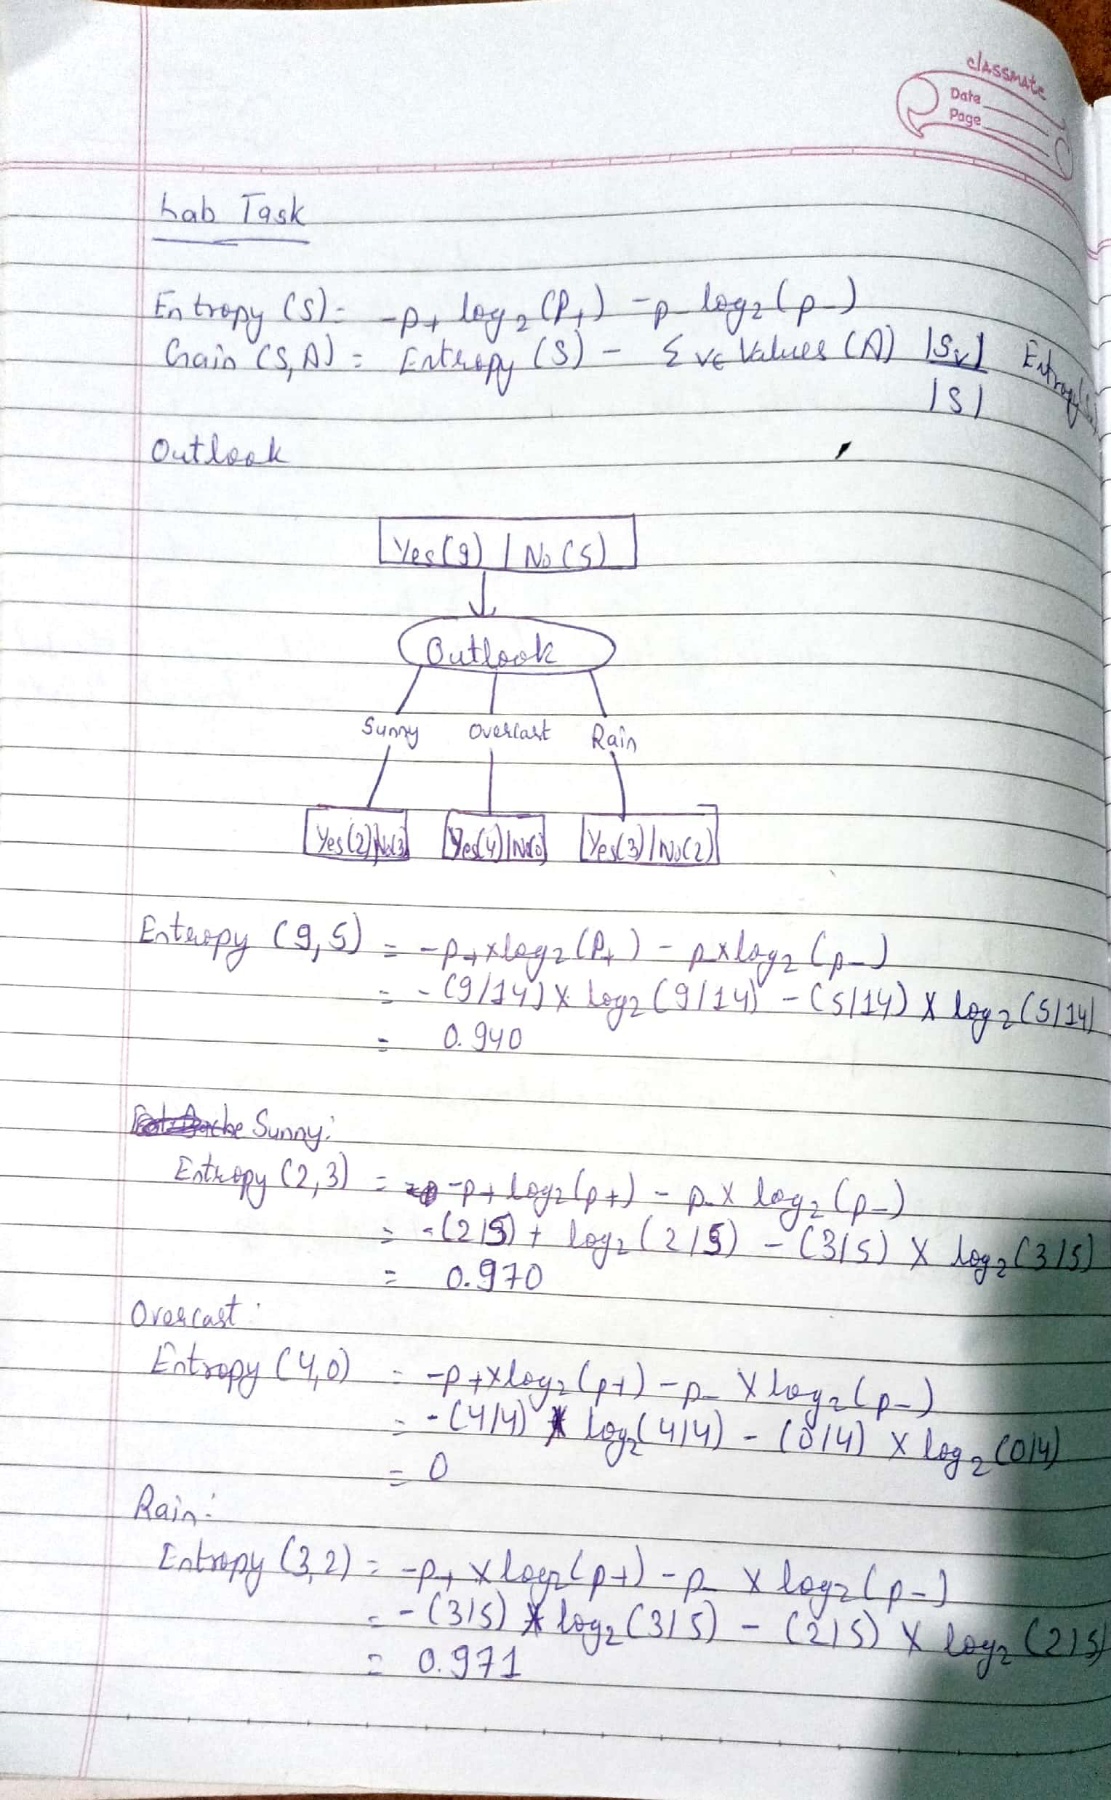 classmate
Date
Page
Lab Task
Entropy (S) = -p+ log2 (P+) -p- log2 (p-)
Gain (S,A) = Entropy (S) - Σ vϵ Values (A) |Sv| / |S| Entropy(
Outlook
Yes(9) | No(5)
Outlook
Sunny Overcast Rain
Yes(2)|No(3) Yes(4)|No(0) Yes(3)|No(2)
Entropy (9,5) = -p+ x log2 (P+) - p- x log2 (p-)
= -(9/14) x log2 (9/14) - (5/14) x log2 (5/14)
= 0.940
Sunny:
Entropy (2,3) = -p+ log2(p+) - p- x log2 (p-)
= -(2/5) + log2 (2/5) - (3/5) x log2 (3/5)
= 0.970
Overcast:
Entropy (4,0) = -p+ x log2 (p+) - p- x log2 (p-)
= -(4/4) * log2 (4/4) - (0/4) x log2 (0/4)
= 0
Rain:
Entropy (3,2) = -p+ x log2 (p+) - p- x log2 (p-)
= -(3/5) * log2 (3/5) - (2/5) x log2 (2/5)
= 0.971